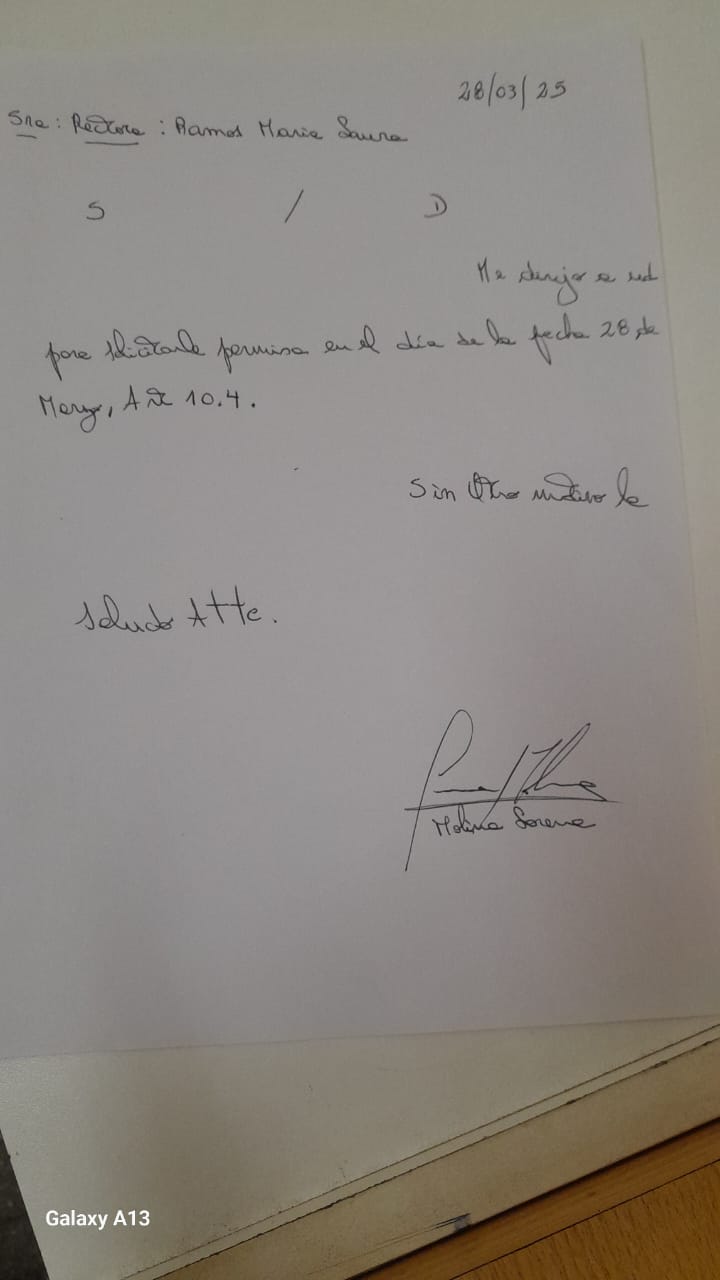 28/03/25
Sra: Rectora: Ramos Maria Laura
S / D
Me dirijo a ud
para solicitarle permiso en el día de la fecha 28 de
Marzo, Art 10.4.
Sin Otro motivo le
saludo Atte.
Molina Lorena
Galaxy A13